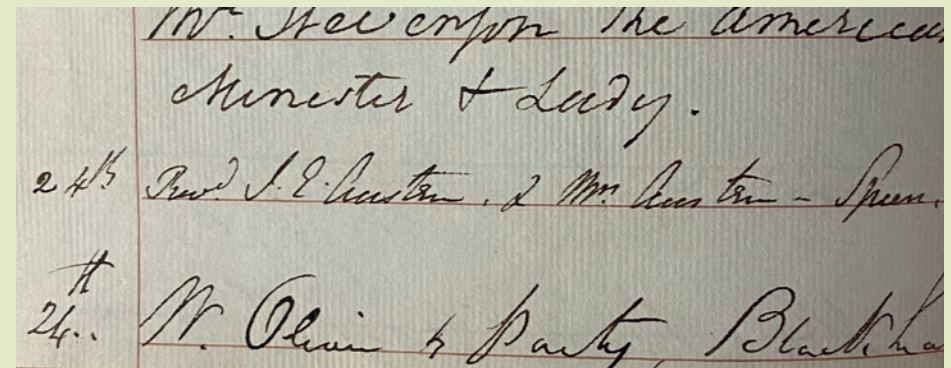 Mr. Stevenson The America
Minister & Lady.
24th Revd. J. E. Austen. & Mrs. Austen - Speen.
24th.. W. Olivier & Party, Blackhe